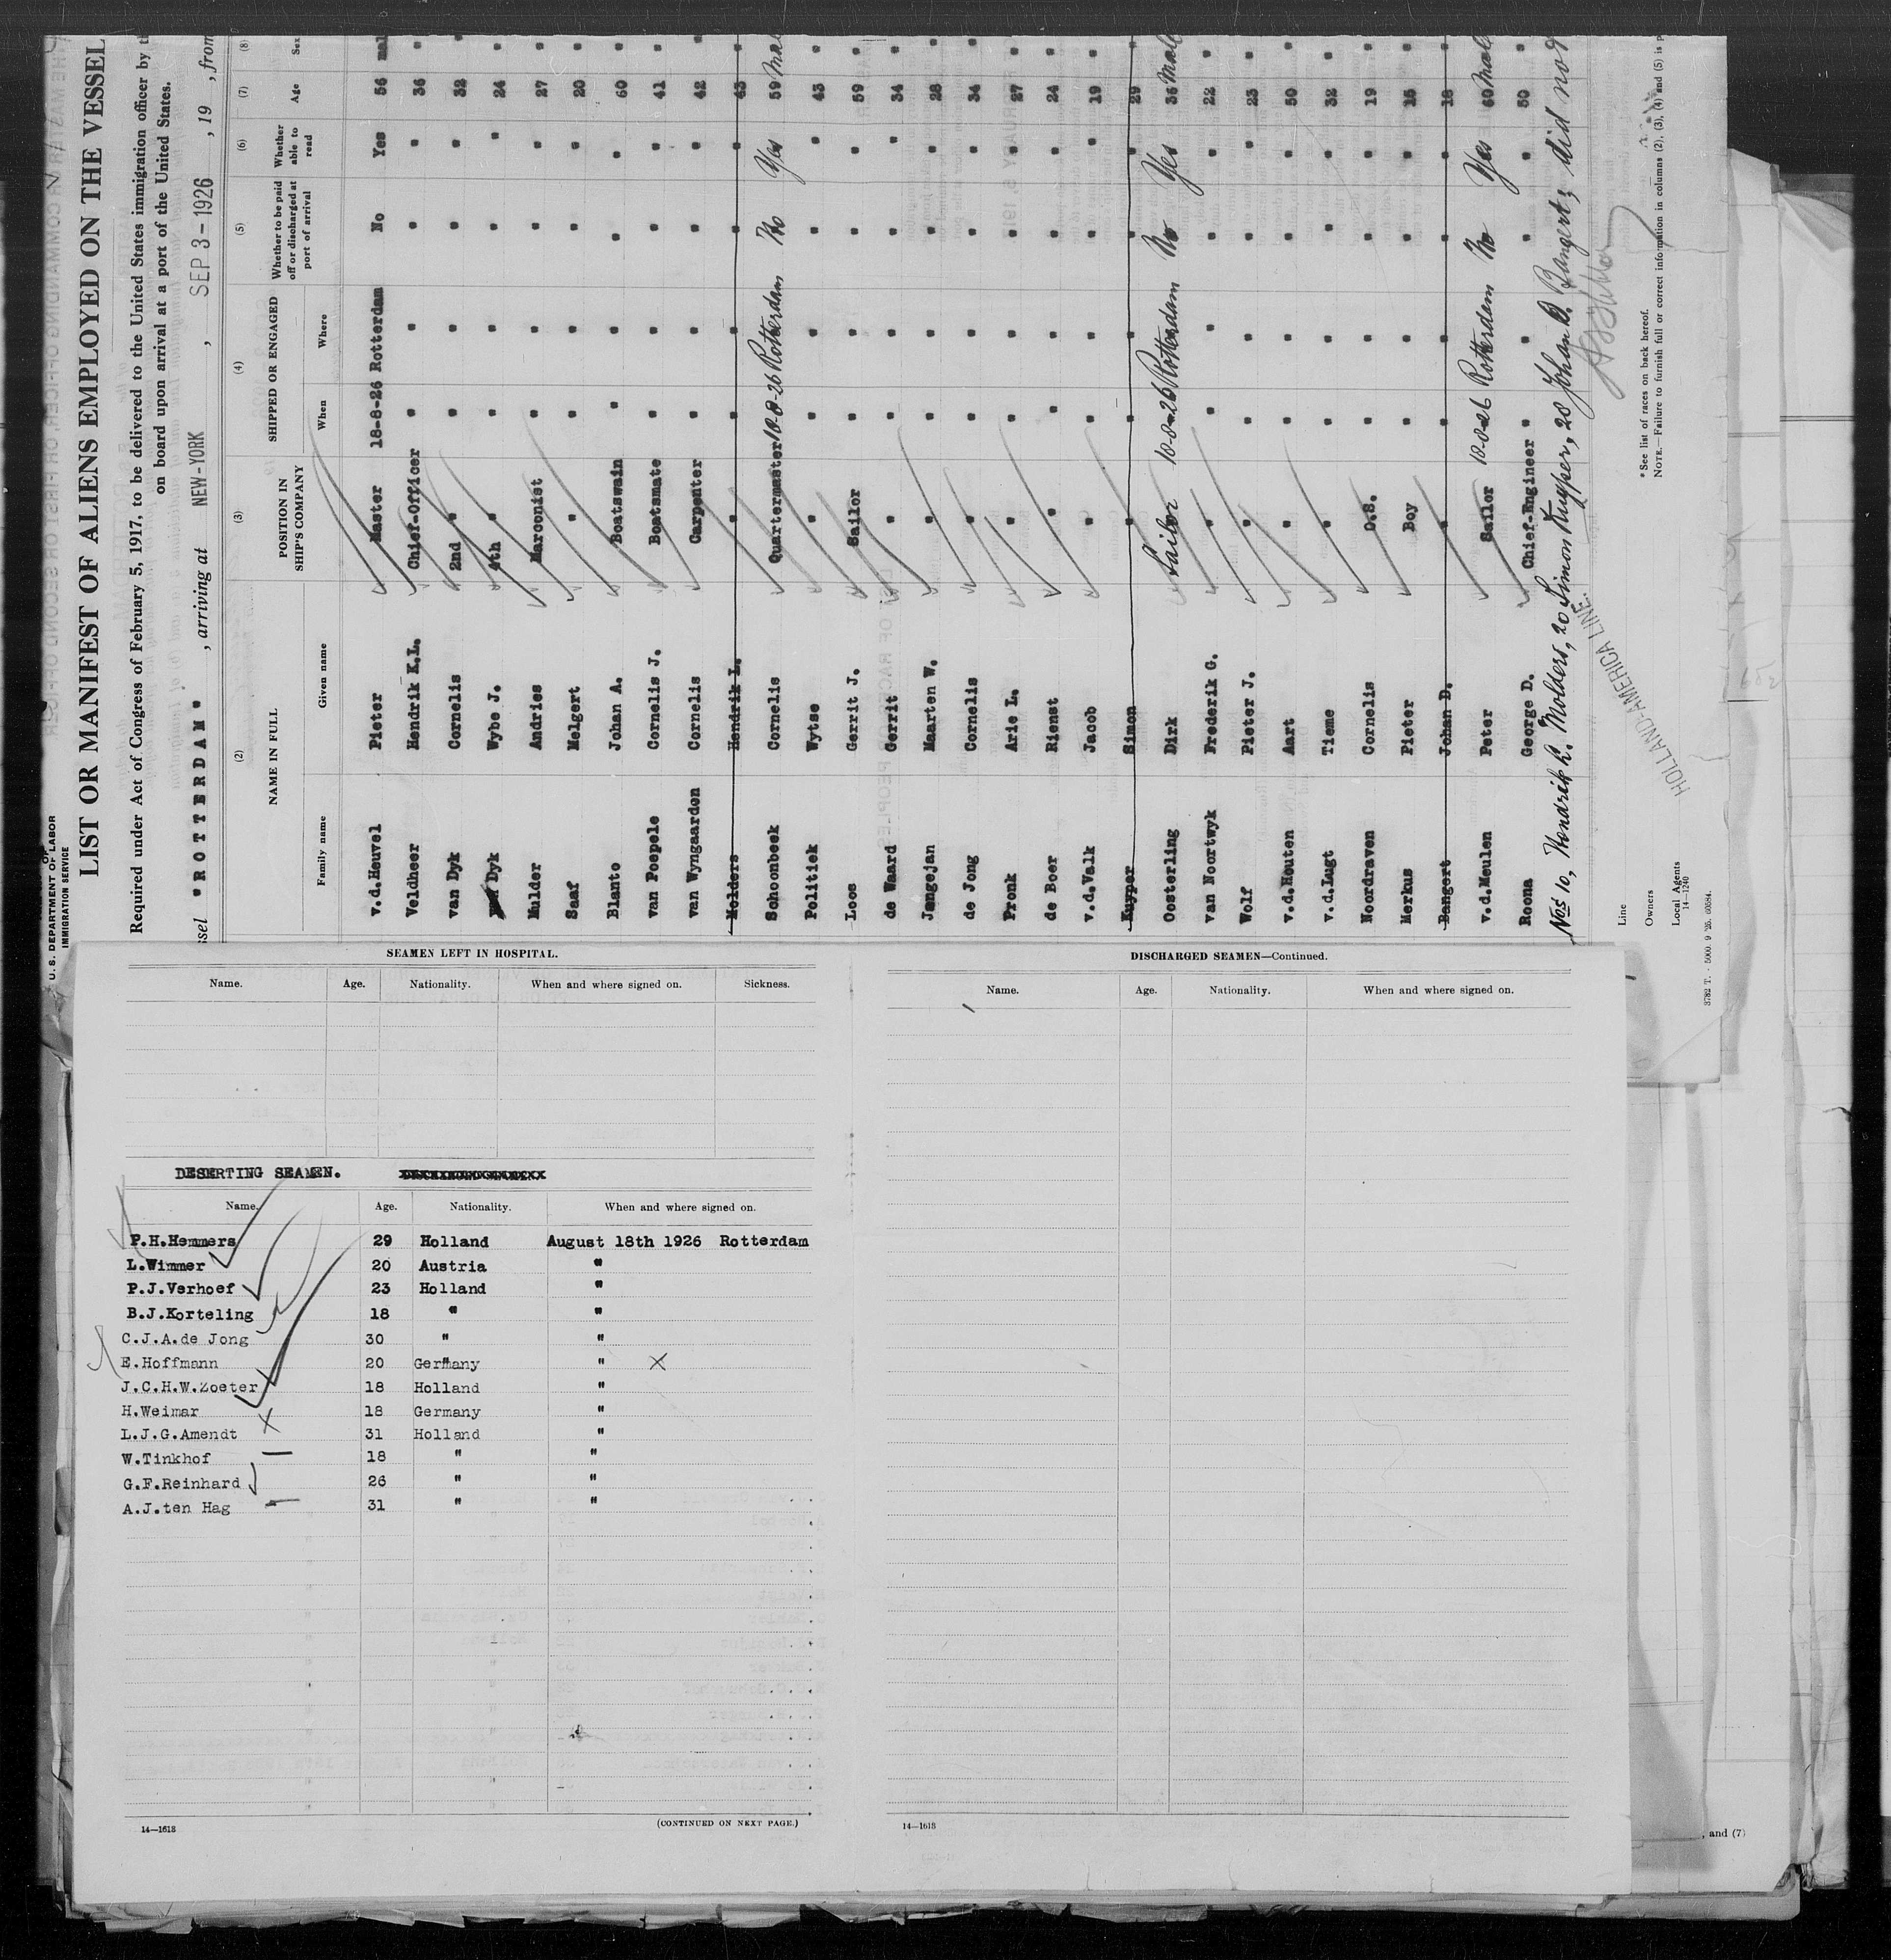 U. S. DEPARTMENT OF LABOR
IMMIGRATION SERVICE
LIST OR MANIFEST OF ALIENS EMPLOYED ON THE VESSEL
Required under Act of Congress of February 5, 1917, to be delivered to the United States immigration officer by
on board upon arrival at a port of the United States.
"ROTTERDAM" , arriving at NEW-YORK , SEP 3-1926 , 19 , from
(2) (3) (4) (5) (6) (7) (8)
NAME IN FULL POSITION IN SHIP'S COMPANY SHIPPED OR ENGAGED Whether to be paid off or discharged at port of arrival Whether able to read Age Sex
Family name Given name When Where
v.d.Heuvel Pieter Master 18-8-26 Rotterdam No Yes 56
Veldheer Hendrik K.L. Chief-Officer " " " " 36 "
van Dyk Cornelis 2nd " " " " " 32 "
van Dyk Wybe J. 4th " " " " " 24 "
Mulder Andries Marconist " " " " 27 "
Saaf Melgert " " " " " 20 "
Blanto Johan A. Boatswain " " " " 60 "
van Poepele Cornelis J. Boatsmate " " " " 41 "
van Wyngaarden Cornelis Carpenter " " " " 42 "
Molders Hendrik L. " " " " " 43 "
Schoonbeek Cornelis Quartermaster 18-8-26 Rotterdam No Yes 59 Male
Politiek Wytse " " " " " 43 "
Loos Gerrit J. Sailor " " " " 59 "
de Waard Gerrit " " " " " 34 "
Jangejan Maarten W. " " " " " 28 "
de Jong Cornelis " " " " " 34 "
Pronk Arie L. " " " " " 27 "
de Boer Rienst " " " " " 24 "
v.d.Valk Jacob " " " " " 19 "
Kuyper Simon " " " " " 29 "
Oosterling Dirk Sailor 18-8-26 Rotterdam No Yes 36 Male
van Noortwyk Frederik G. " " " " " 22 "
Wolf Pieter J. " " " " " 23 "
v.d.Houten Aart " " " " " 50 "
v.d.Lugt Tieme " " " " " 32 "
Noordraven Cornelis O.S. " " " " 19 "
Merkus Pieter Boy " " " " 15 "
Bangert Johan D. " " " " " 18 "
v.d.Meulen Peter Sailor 18-8-26 Rotterdam No Yes 60 Male
Roona George D. Chief-Engineer " " " " 50 "
Nos 10, Hendrik L. Molders, 20 Simon Kuyper, 28 Johan D. Bangert; did not
HOLLAND-AMERICA LINE.
Line
Owners
Local Agents
14—1240
* See list of races on back hereof.
NOTE.—Failure to furnish full or correct information in columns (2), (3), (4) and (5) is p
SEAMEN LEFT IN HOSPITAL.
Name. Age. Nationality. When and where signed on. Sickness.
DESERTING SEAMEN.
Name. Age. Nationality. When and where signed on.
P.H.Hemmers 29 Holland August 18th 1926 Rotterdam
L.Wimmer 20 Austria "
P.J.Verhoef 23 Holland "
B.J.Korteling 18 " "
C.J.A.de Jong 30 " "
E.Hoffmann 20 Germany " X
J.C.H.W.Zoeter 18 Holland "
H.Weimar 18 Germany "
L.J.G.Amendt 31 Holland "
W.Tinkhof 18 " "
G.F.Reinhard 26 " "
A.J.ten Hag 31 " "
14—1618 (CONTINUED ON NEXT PAGE.)
DISCHARGED SEAMEN—Continued.
Name. Age. Nationality. When and where signed on.
14—1618
, and (7)